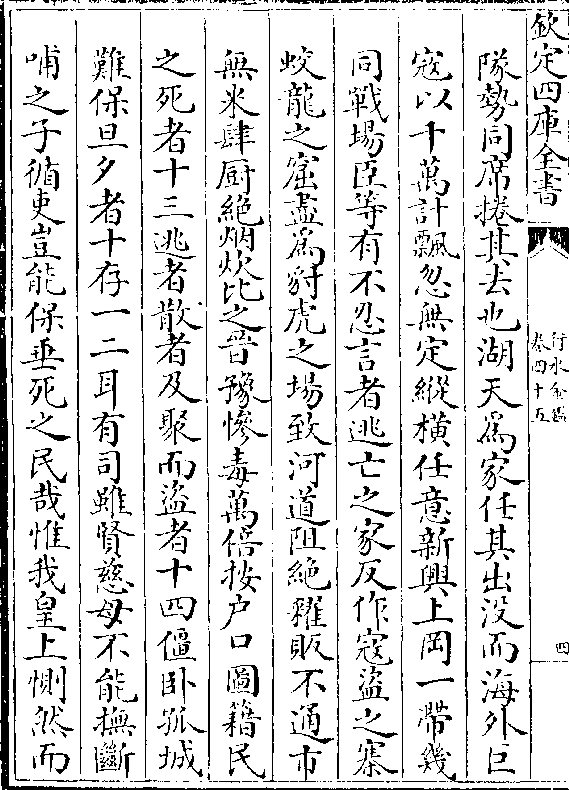 欽定四庫全書
行水金鑑
卷四十五
四
隊勢同席捲其去也湖天為家任其出沒而海外巨
寇以千萬計飄忽無定縱橫任意新興上岡一帶幾
同戰場臣等有不忍言者逃亡之家反作寇盜之寨
蛟龍之窟盡為豺虎之場致河道阻絕糴販不通市
無米肆厨絶烟炊比之晉豫慘毒萬倍按户口圖籍民
之死者十三逃者散者及聚而盜者十四僵卧孤城
難保旦夕者十存一二耳有司雖賢慈母不能撫斷
哺之子循吏豈能保垂死之民哉惟我皇上惻然而